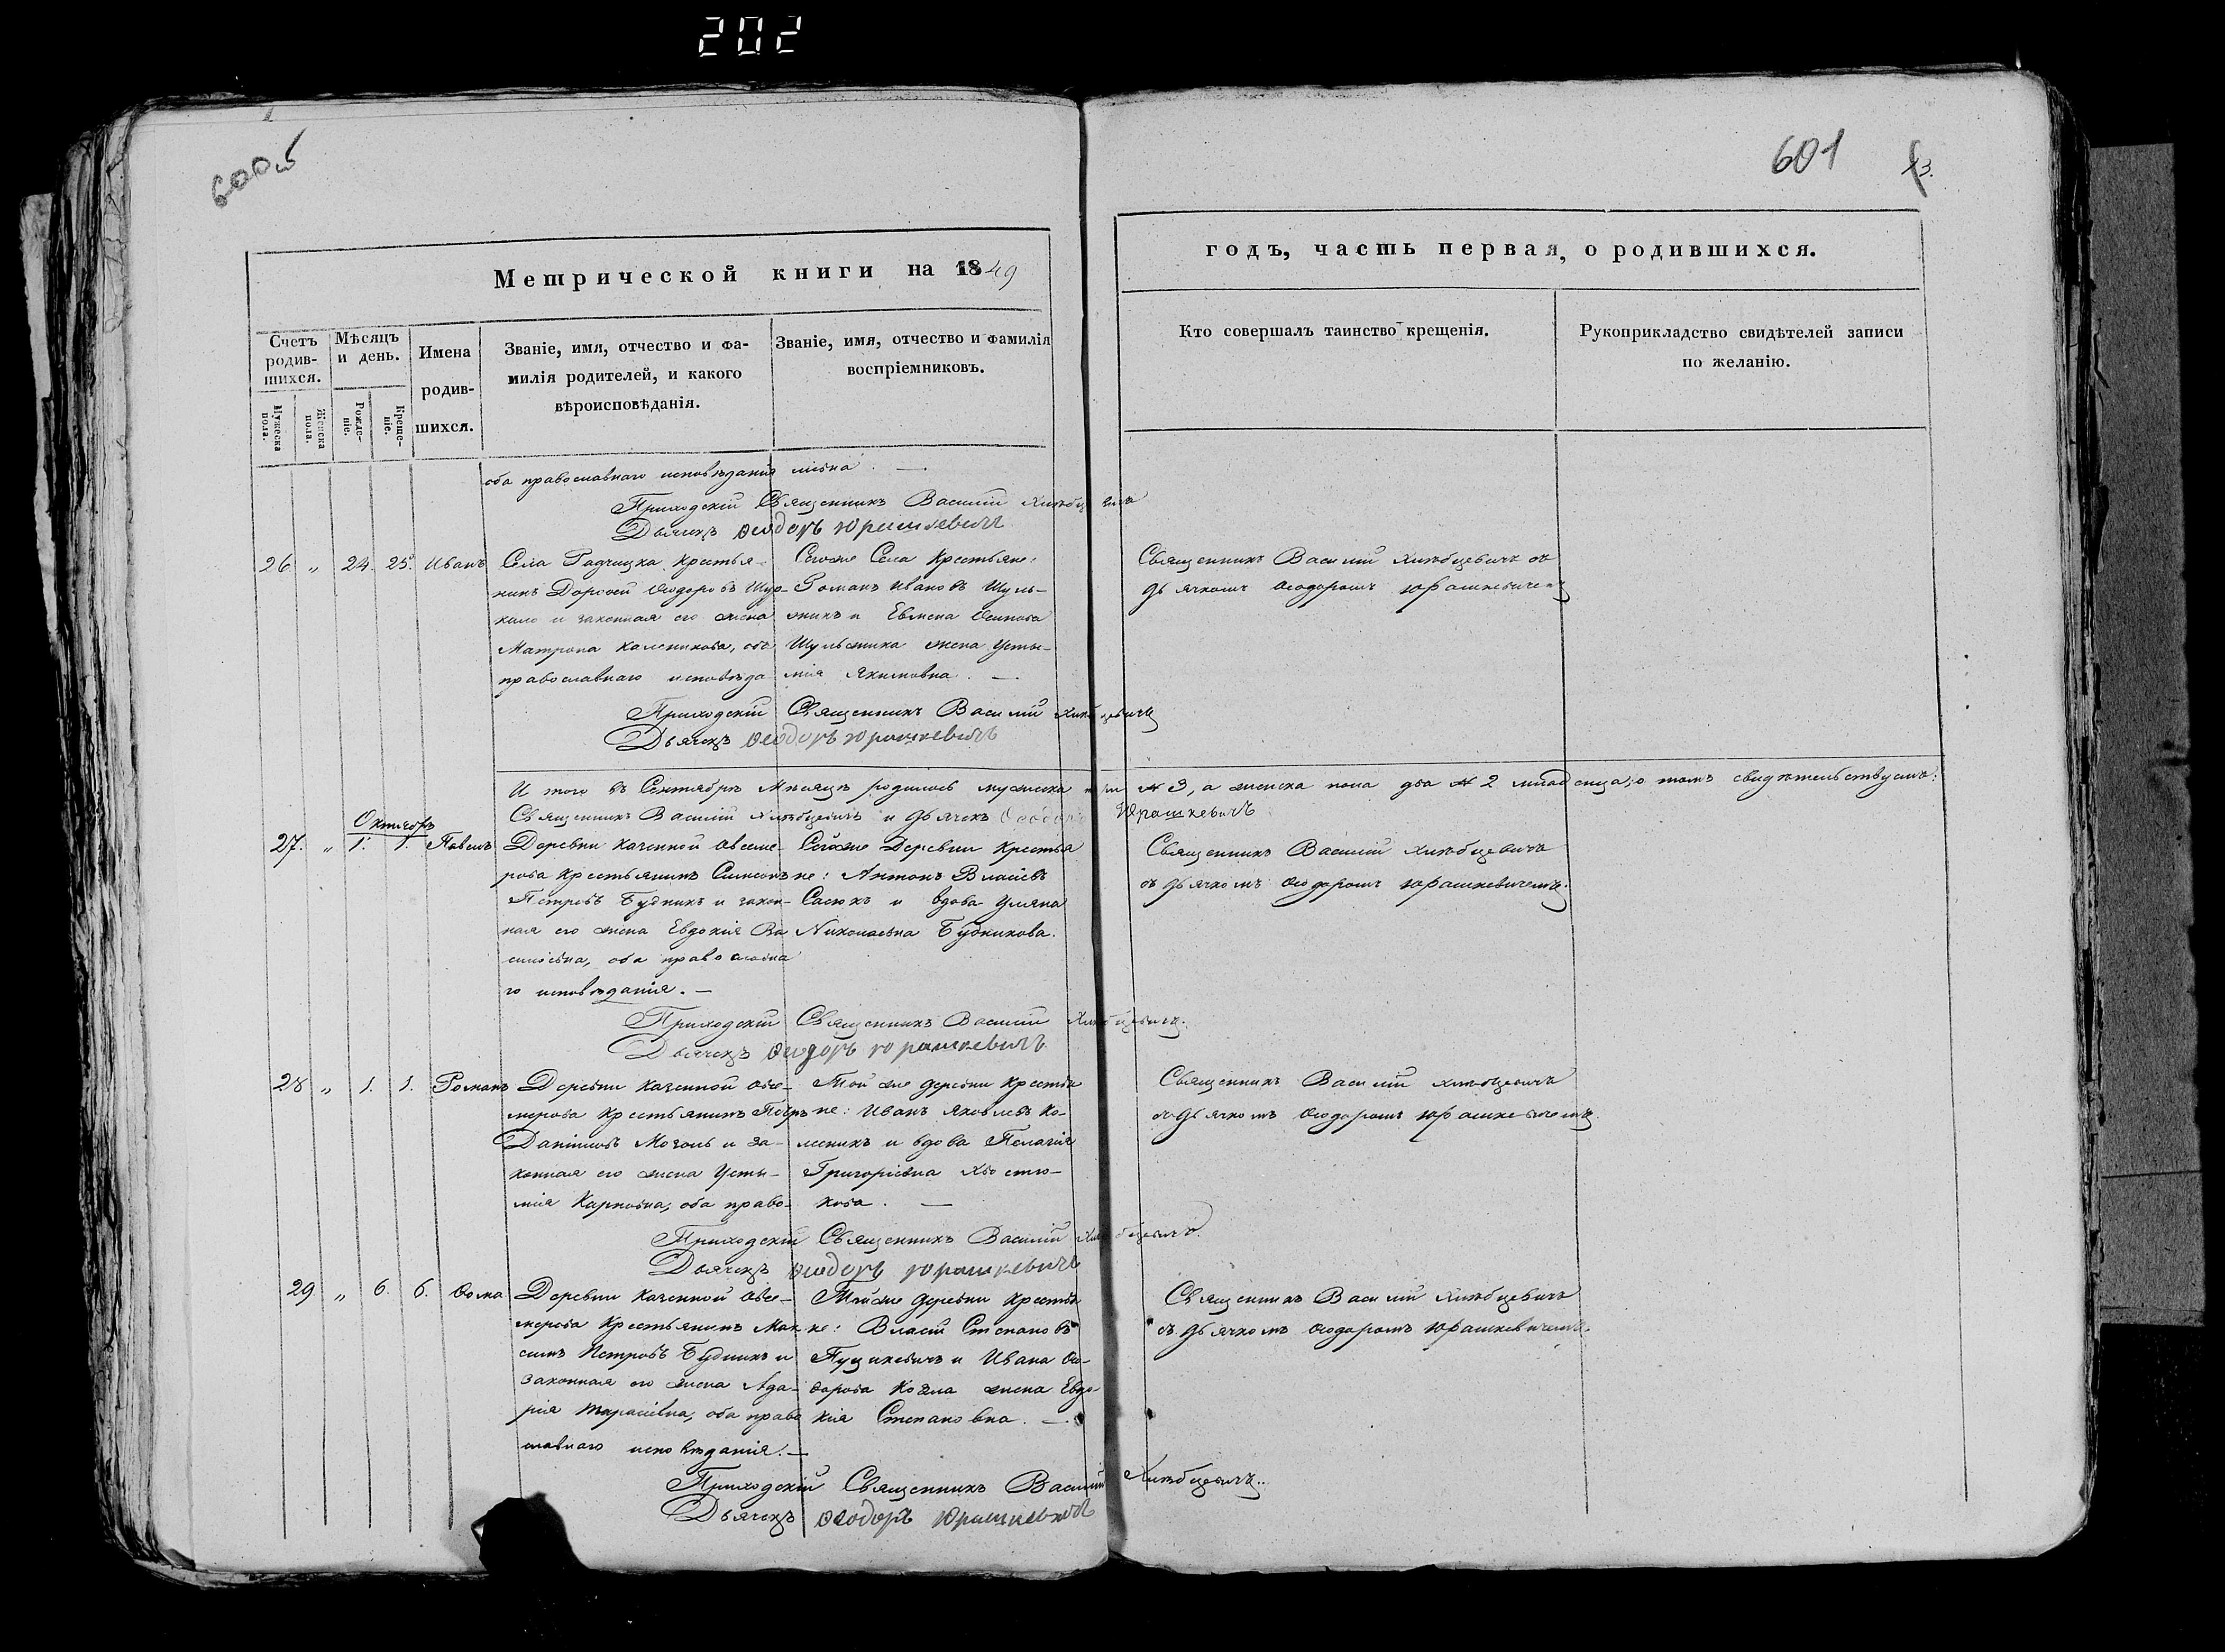 202
600об
601
Метрической книги на 1849
годъ, часть первая, о родившихся.
Счетъ родившихся.
Мужеска пола.
Женска пола.
Мѣсяцъ и день.
Рожденіе.
Крещеніе.
Имена родившихся.
Званіе, имя, отчество и фамилія родителей, и какого вѣроисповѣданія.
Званіе, имя, отчество и фамилія воспріемниковъ.
Кто совершалъ таинство крещенія.
Рукоприкладство свидѣтелей записи по желанію.
оба православнаго исповѣданія
Приходскій Священникъ Василій Хлѣбцевичъ
Дьячекъ Ѳеодоръ Юрашкевичъ
26 „ 24. 25. Иванъ
Села Радчицка Крестья-
нинъ Дороѳей Ѳеодоровъ Шур-
кало и законная его жена
Матрона Каленикова, оба
православнаго исповѣда
Сегоже Села Крестьяне:
Романъ Ивановъ Шуль-
жикъ и Осипова
Шульжика жена Усти-
нія Якимовна. —
Священникъ Василій Хлѣбцевичъ съ
дьячкомъ Ѳеодоромъ Юрашкевичемъ
Приходскій Священникъ Василій Хлѣбцевичъ
Дьячекъ Ѳеодоръ Юрашкевичъ
И того въ Сентябрѣ Мѣсяцѣ родилось мужеска 3, а женска пола два 2 младенца, о томъ свидѣтельствуемъ:
Священникъ Василій Хлѣбцевичъ и Дьячекъ Ѳеодоръ Юрашкевичъ
Октябрь
27. „ 1. 1. Павелъ
Деревни Казенной Овсеме-
рова Крестьянинъ Симеонъ
Петровъ Будникъ и закон-
ная его жена Евдокія Ва
силіевна, оба православна
го исповѣданія. —
Сейже Деревни Крестья
не: Антонъ Власіевъ
Сасюкъ и вдова Уляна
Николаевна Будникова.
Священникъ Василій Хлѣбцевичъ
съ дьячкомъ Ѳеодоромъ Юрашкевичемъ.
Приходскій Священникъ Василій Хлѣбцевичъ.
Дьячекъ Ѳеодоръ Юрашкевичъ
28 „ 1. 1. Романъ
Деревни Казенной Овсе-
мерова Крестьянинъ Петръ
Даниловъ Мозоль и за-
конная его жена Усти-
нія Карповна, оба право-
Той же деревни Крестья
не: Иванъ Яковлевъ Ко-
лесникъ и вдова Пелагія
Григоріевна Хвостю-
кова. —
Священникъ Василій Хлѣбцевичъ
съ дьячкомъ Ѳеодоромъ Юрашкевичемъ.
Приходскій Священникъ Василій Хлѣбцевичъ.
Дьячекъ Ѳеодоръ Юрашкевичъ
29 „ 6. 6. Ѳома
Деревни Казенной Овсе-
мерова Крестьянинъ Мак-
симъ Петровъ Будникъ и
законная его жена Ага-
рія Тарасіевна, оба право
славнаго исповѣданія. —
Тойже деревни Крестья
не: Власій Степановъ
Пуцикевичъ и Ивана Ѳео-
дорова Козла жена Евдо-
кія Степановна. —
Священникъ Василій Хлѣбцевичъ
съ дьячкомъ Ѳеодоромъ Юрашкевичемъ.
Приходскій Священникъ Василій Хлѣбцевичъ.
Дьячекъ Ѳеодоръ Юрашкевичъ